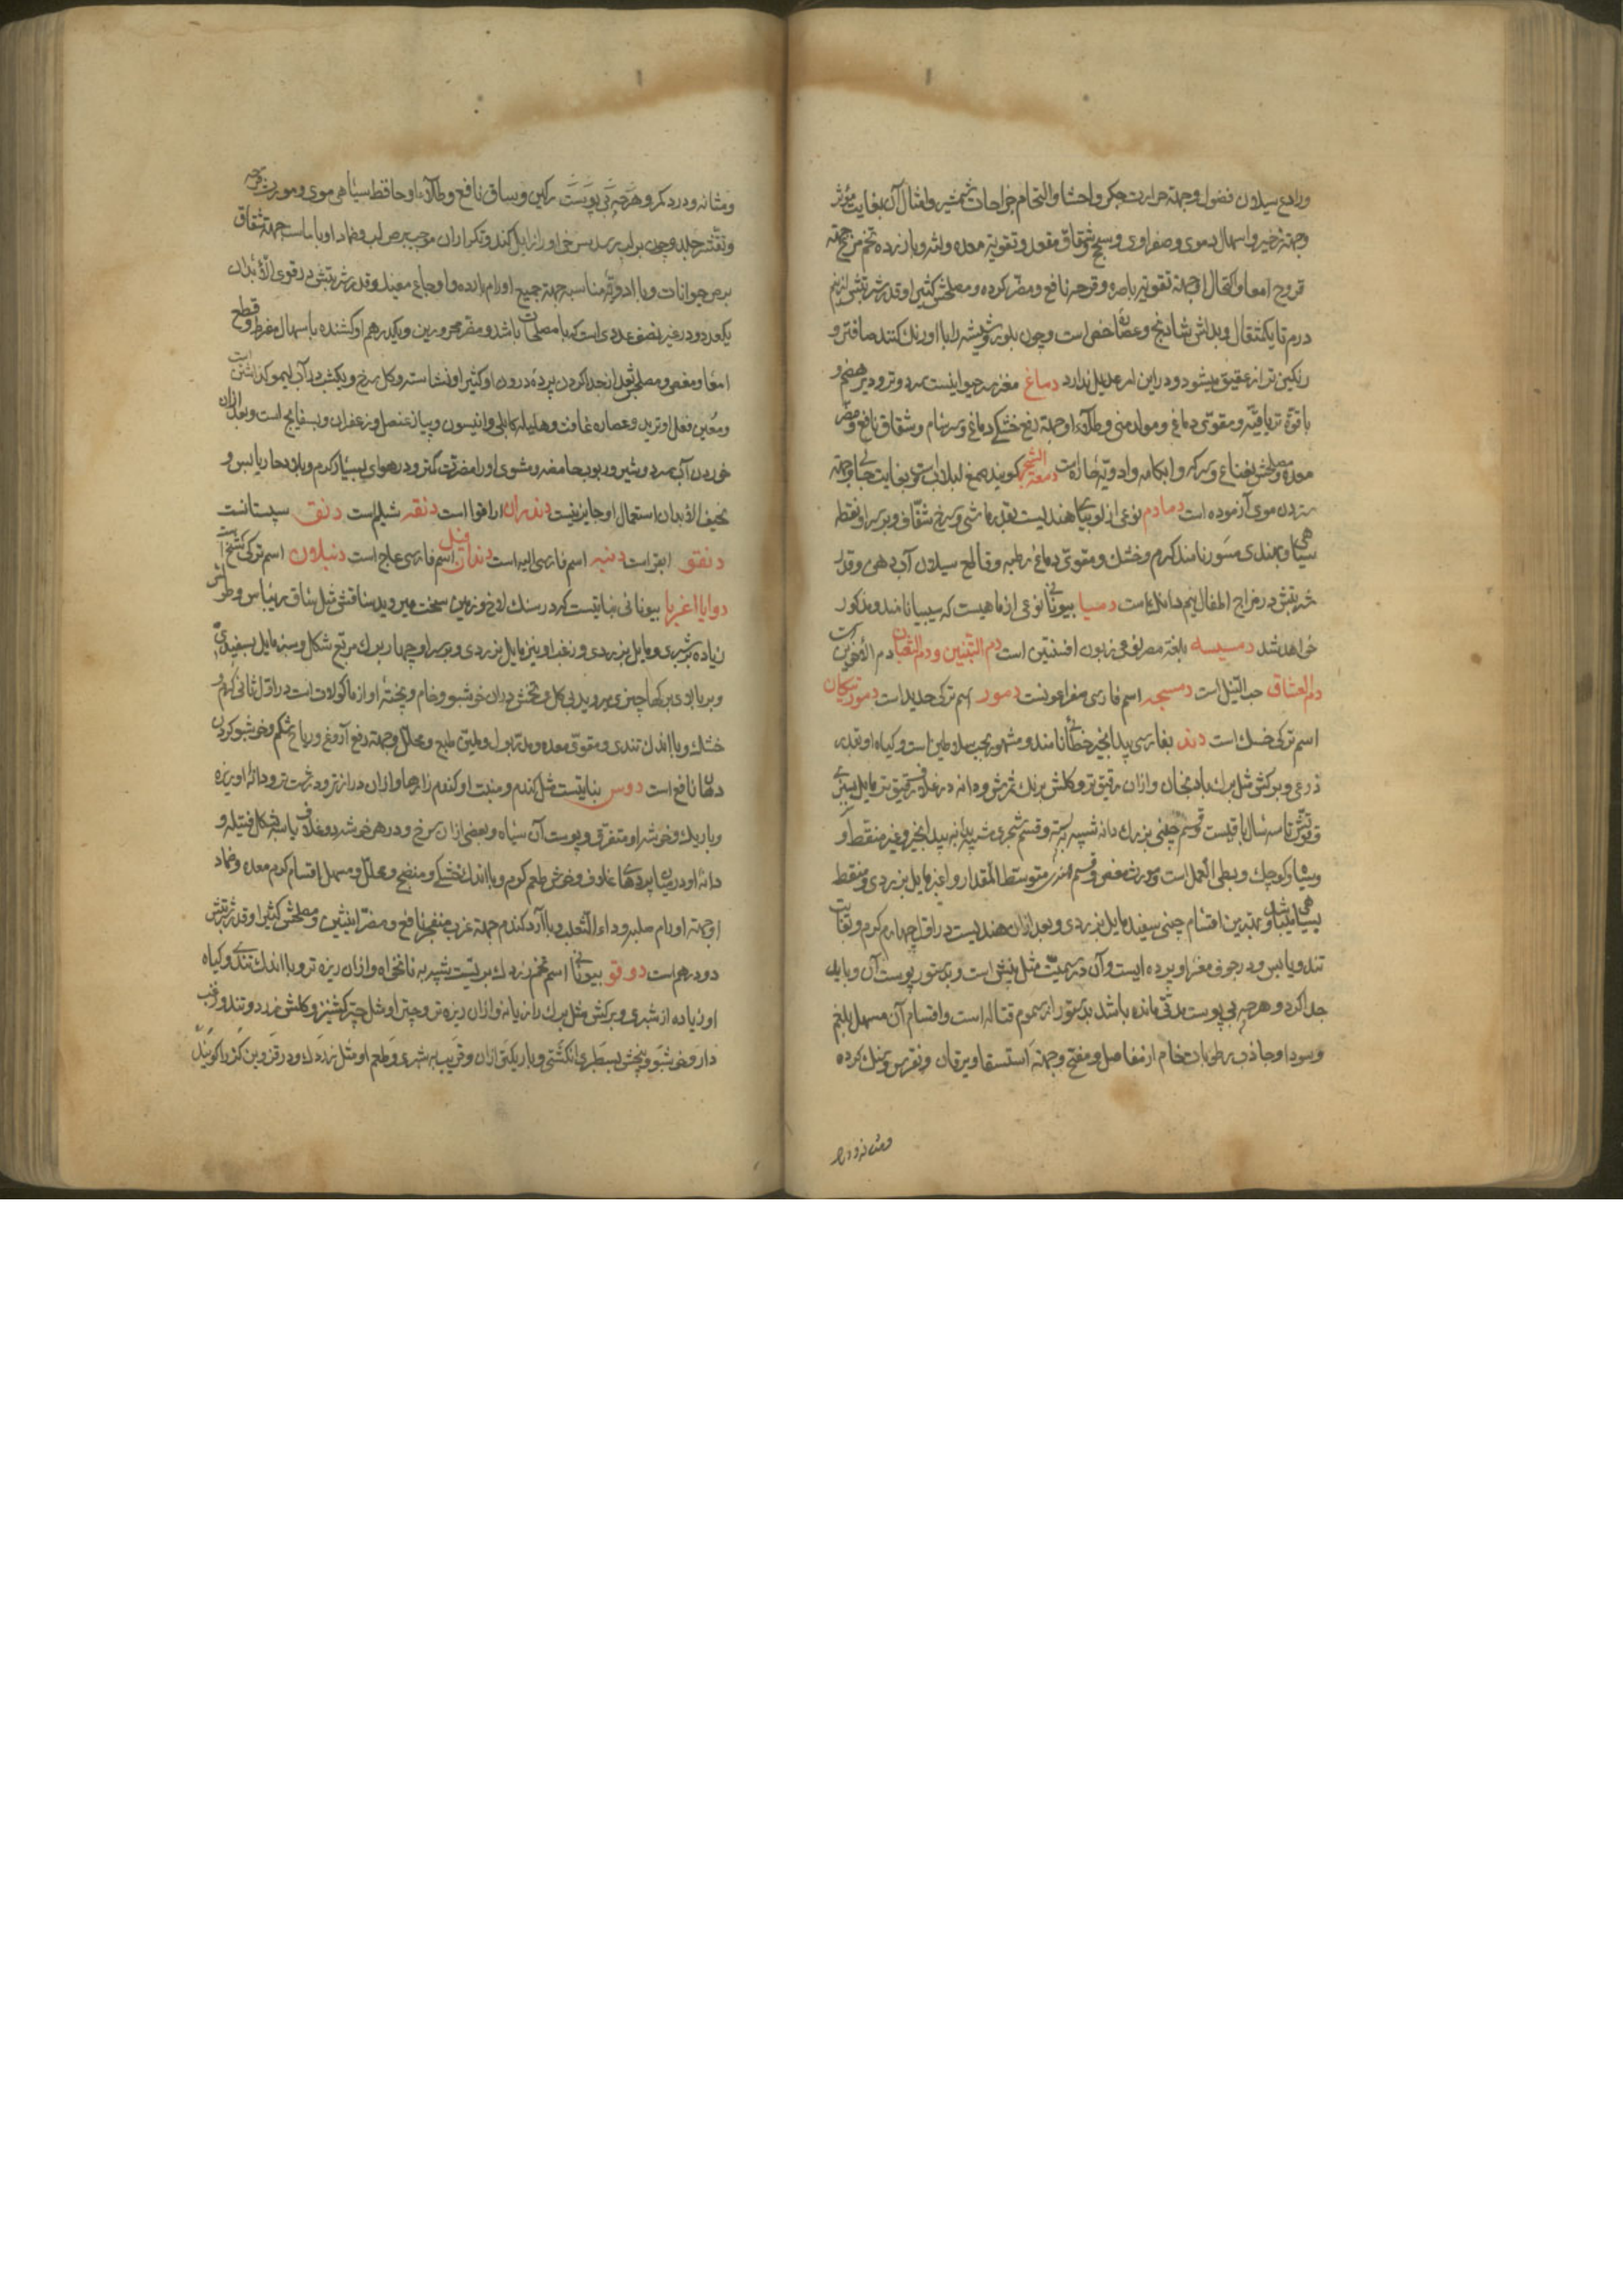 ورادع سیلان فضول وجهته حرارت جکر واحشا والتحام جراحات شمشیر وامثال آن بغایت مؤثر
وجهته زحیر واسهال دموی وصفراوی وسحج وشقاق مقعد وتقویة معده ولثه وبا زرده تخم مرغ جهته
قروح امعا واکتحال او جهته تقویة باصره وقرحه نافع ومضر کرده ومصلحش کتیرا وقدر شربتش از نیم
درم تا یکمثقال وبدلش شادنج وعصاره خس است وچون بلور وشیشه را با او رنک کنند صافتر و
رنکین تر از عقیق میشود ودر این امر عدیل ندارد دماغ مغز سر حیوانیست سرد وتر ودیر هضم و
با قوة تریاقیه ومقوی دماغ ومولد منی وطلاء او جهته رفع خشکی دماغ وسرسام وشقاق نافع ومضر
معده ومصلحش نعناع وسرکه وابکامه وادویه حاره است دمعة الشجر کویند صمغ لبلابست وبغایت جالی وجهته
ستردن موی آزموده است دمادم نوعی از لوبیای هندیست بقدر ماشی وسرخ شفاف وبر سر او نقطه
سیاهی وبهندی مسور نامند کرم وخشک ومقوی دماغ رطبه وقاطع سیلان آب دهن وقدر
شربتش در مزاج اطفال نیم دانک است دمیا بیونانی نوعی از ماهیست که سیبیا نامند ومذکور
خواهد شد دمسیسه بلغة مصر نوعی زبون افسنتین است دم التنین ودم الثعبان دم الاخوین است
دم العشاق حب النیل است دمسیجه اسم فارسی صفراغونست دمور اسم ترکی حدید است دمورتیکان
اسم ترکی خسک است دند بفارسی بیدانجیر خطائی نامند ومشهور بحب سلاطین است وکیاه او بقدر
ذرعی وبرکش مثل برک بادنجان وازان رقیق تر وکلش برنک ثمرش ودانه در غلاف رقیق تر مایل بسبزی
وقوتش تا سه سال باقیست وقسم چینی بزرک دانه شبیه به پسته وقسم شجری شبیه به بیدانجیر وغیر منقط و
وسیاه وکوچک وبطی العمل است ومورث مغص وقسم هندی متوسط المقدار واغبر مایل بزردی ومنقط
بسیاهی میباشد وبهترین اقسام چینی سفید مایل بزردی وبعد ازان هندیست در اول چهارم کرم وبغایت
تند ویابس ودر جوف مغز او پرده ایست وآن در سمیت مثل بیش است وبدستور پوست آن وباید
جدا کرد وهرچه بی پوست مدتی مانده باشد بدستور از سموم قتاله است واقسام آن مسهل بلغم
وسودا وجاذب رطوبات خام از مفاصل ومفتح وجهته استسقا ویرقان ونقرس وسنک کرده
ومثانه ودرد
ومثانه ودرد کمر و هرچه بی پوست رکین وبساق نافع وطلاء او حافظ سیاهی موی ومورث قرحه
وتقشر جلد وچون بر لب رسد پس خواورا زایل کند وتکرار ان موجب برص لب وضماد او با ماست جهته شقاق
برص حیوانات وبا ادویه مناسبه جهته جمیع اورام بارده واوجاع مفید وقدر شربتش در قوی الابدان
یکعدد ودر غیر نصف عددی است که با مصلحات باشد ومضر محرورین ویکدرهم او کشنده باسهال مفرط وقطع
امعا ومغص ومصلحش بعد از جدا کردن پرده درون او کتیرا ونشاسته وکل سرخ ویکشب در آب لیمو کذاشتن است
ومعین فعل او تربد وعصاره غافت وهلیله کابلی وانیسون وپیاز عنصل وزعفران وبسفایج است وبعد ازان
خوردن آب سرد وشیر وربوب حامضه ومشوی او را مضرت کمتر ودر هوای بسیار کرم وبلاد حار یابس و
نحیف الابدان استعمال او جایز نیست دندران ارافوا است دنقه شیلم است دنق سپستانست
دنقو ابقر است دنبه اسم فارسی الیه است دندان فیل اسم فارسی عاج است دنبلون اسم ترکی کشخ است
دوایا اغریا بیونانی نباتیست که در سنک لاخ وزمین سخت میروید ساقش مثل ساق ریباس وطولش
زیاده بر شبری ومایل بزردی وزغب او نیز مایل بزردی وبر سر او چهار برک مربع شکل وسبز مایل بسفیدی
وبر بالای برکها چیزی میروید بی کل وتخمش دران خوشبو وخام وپخته او از ماکولات است در اول ثانی کرم و
خشک وبا اندک تندی ومقوی معده ومدر بول وملین طبع ومحلل وجهته رفع آروغ وریاح شکم وخوشبو کردن
دهان نافع است دوس نباتیست مثل کندم ومنبت او کندم زارها وازان درازتر ودرشت تر ودانه او ریزه
وباریک وخوشه او متفرق وپوست آن سیاه وبعضی ازان سرخ ودر هر خوشه دو غلاف یا سه بشکل فتیله و
دانه او در میان پردهای غلاف وخوش طعم کرم وبا اندک خشکی ومنضج ومحلل ومسهل اقسام کرم معده وضماد
او جهته اورام صلبه وداء الثعلب وبا آرد کندم جهته غرب منفجر نافع ومضر انثیین ومصلحش کتیرا وقدر شربتش
دو درهم است دوقو بیونانی اسم تخم زردک بریست شبیه به نانخواه وازان ریزه تر وبا اندک تندی وکیاه
او زیاده از شبری وبرکش مثل برک رازیانه وازان ریزه تر وچتر او مثل چتر کشنیز وکلش زرد وتند وزغب
دار وخوشبو وبیخش بسطبری انکشتی وباریکتر ازان وقریب بشبری وطعم او مثل زردک ودر قزوین کزر یا کویند